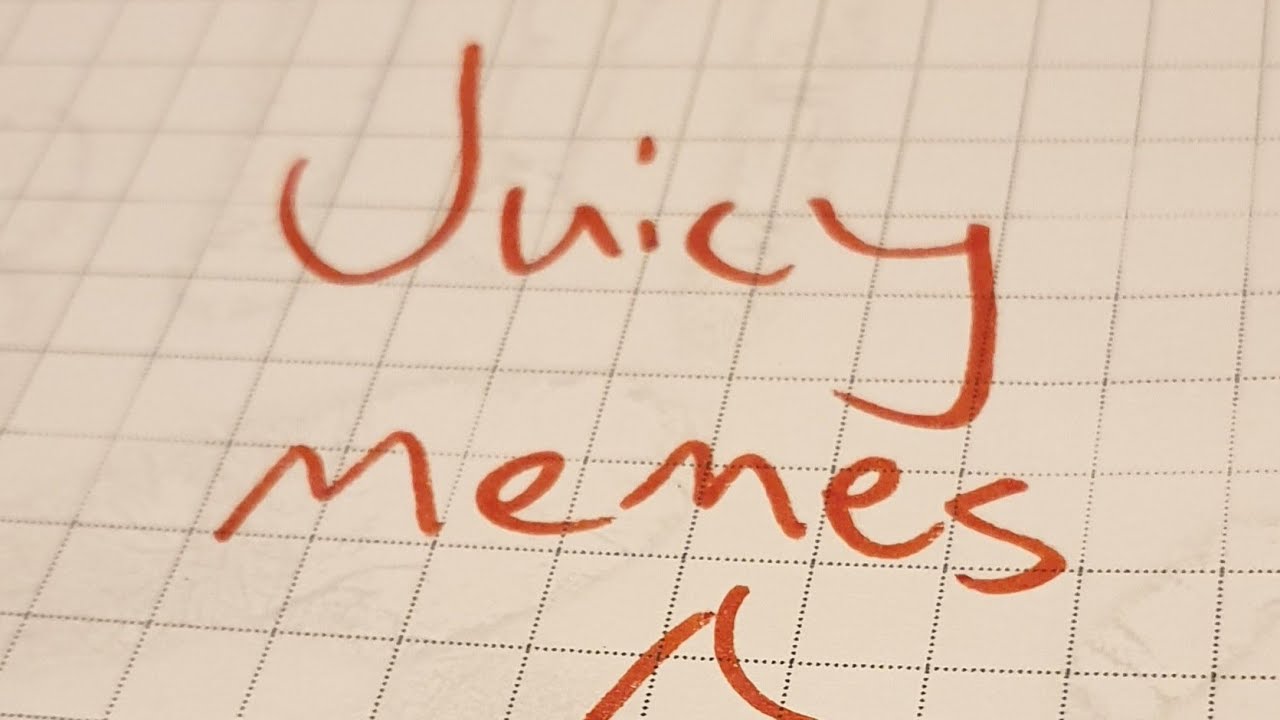 Juicy
memes